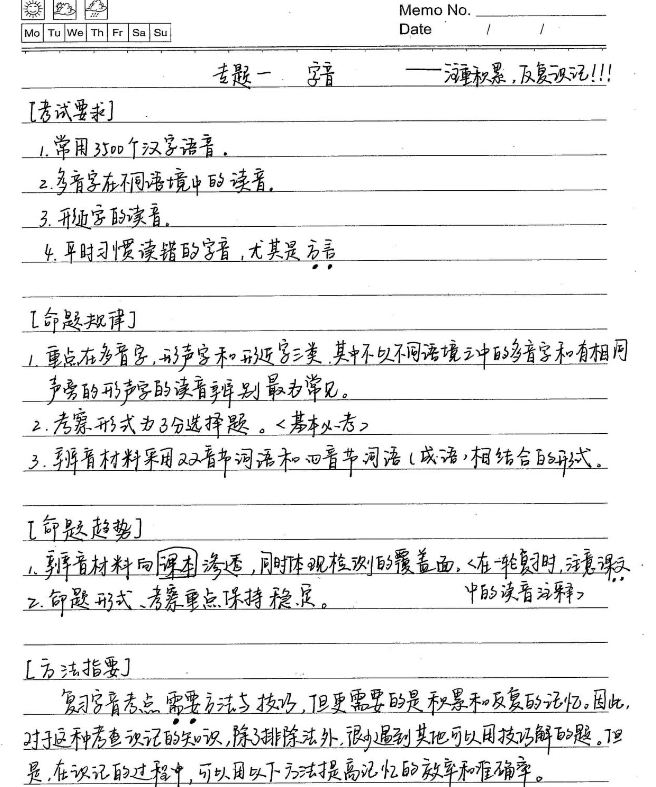 Memo No.
Mo Tu We Th Fr Sa Su
Date / /
专题一 字音 ——注重积累,反复识记!!!
[考试要求]
1.常用3500个汉字语音.
2.多音字在不同语境中的读音.
3.形近字的读音.
4.平时习惯读错的字音,尤其是方言
[命题规律]
1.重点在多音字,形声字和形近字三类,其中不以不同语境之中的多音字和有相同
声旁的形声字的读音辨别最为常见。
2.考察形式为3分选择题。<基本必考>
3.辨音材料采用双音节词语和四音节词语(成语)相结合的形式。
[命题趋势]
1.辨音材料向课本渗透,同时体现检测的覆盖面,<在一轮复习时,注意课文
2.命题形式、考察重点保持稳定。 中的读音注释>
[方法指要]
复习字音考点需要方法与技巧,但更需要的是积累和反复的记忆。因此,
对于这种考查识记的知识,除了排除法外,很少遇到其他可以用技巧解的题。但
是,在识记的过程中,可以用以下方法提高记忆的效率和准确率。